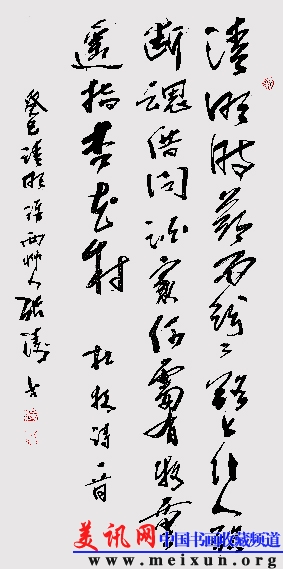 清明時节雨紛〻路上行人欲
断魂借问酒家何處有牧童
遥指杏花村 杜牧诗一首
癸巳清明
美讯网 中国书画收藏频道
www.meixun.org